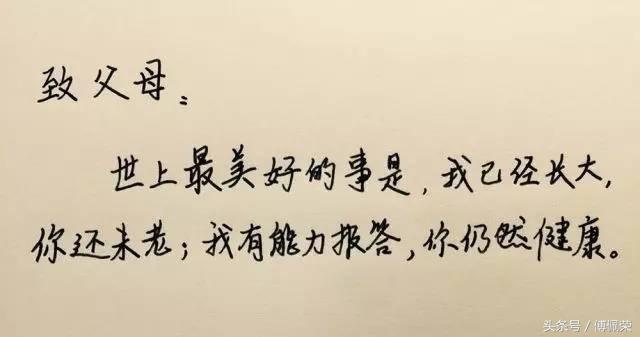 致父母：
世上最美好的事是，我已经长大，
你还未老；我有能力报答，你仍然健康。
头条号 / 傅佩荣